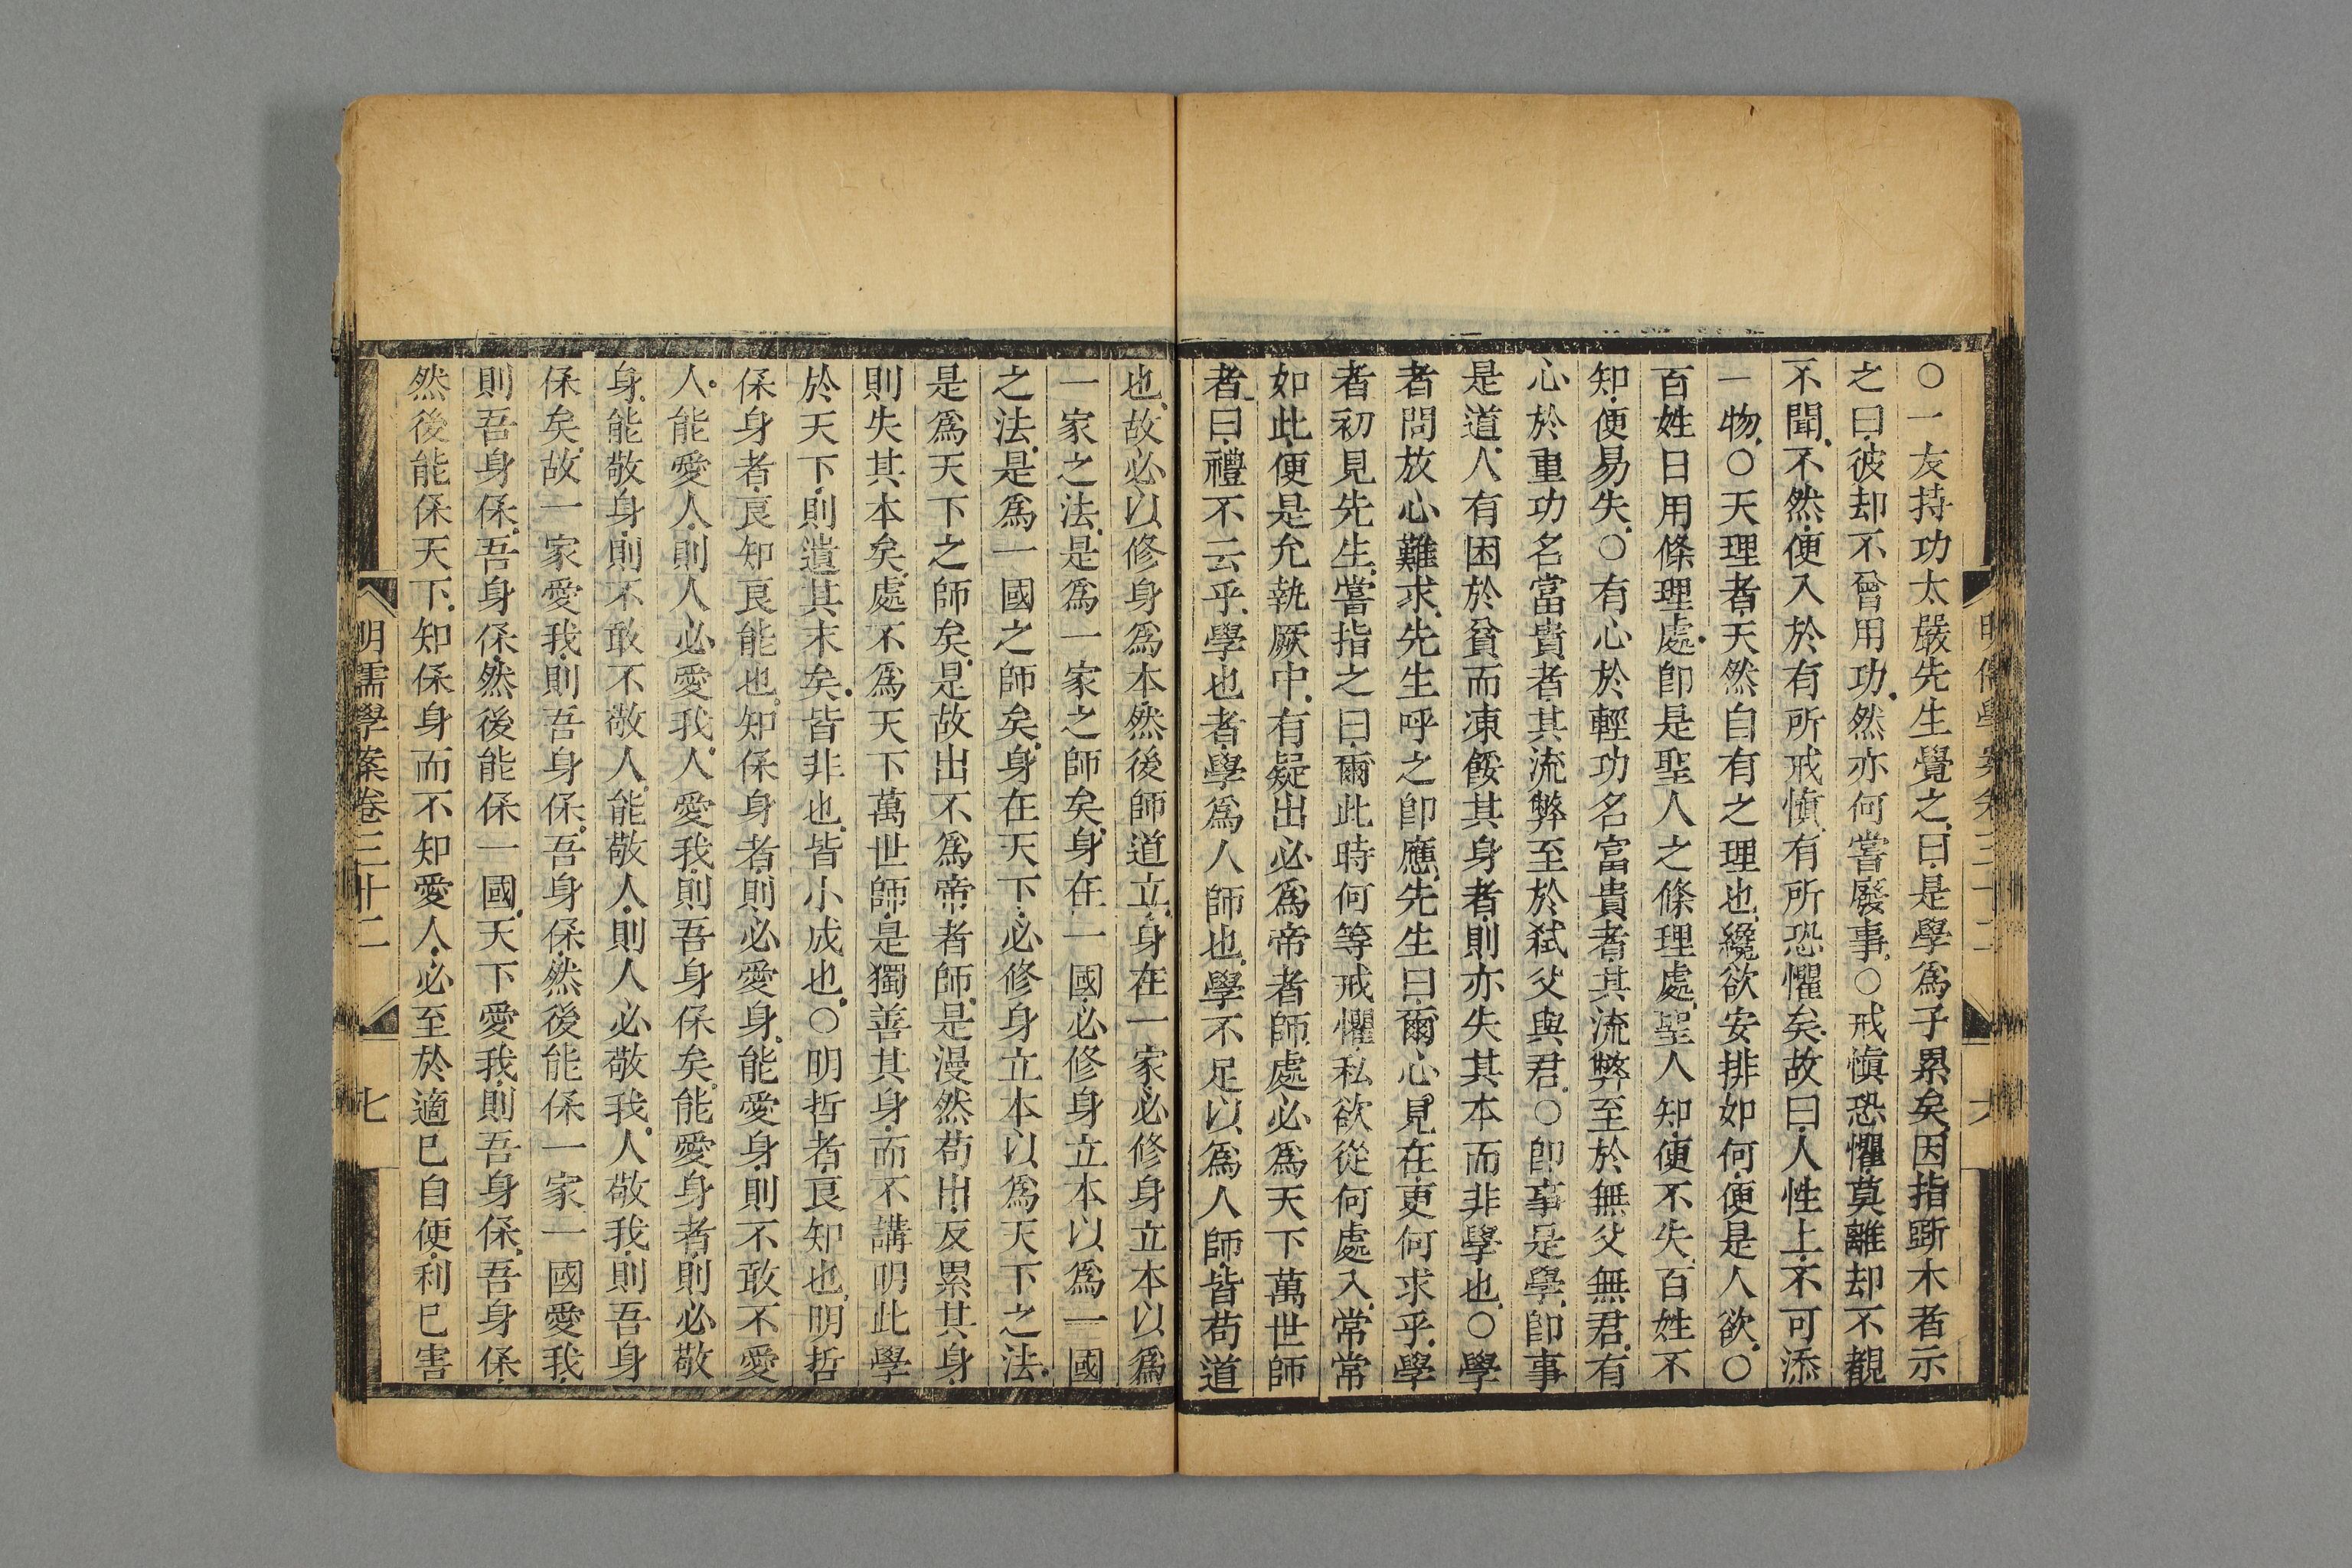 〇一友持功太嚴先生覺之曰是學爲子累矣因指斲木者示
之曰彼却不曾用功然亦何嘗廢事〇戒愼恐懼莫離却不覩
不聞不然便入於有所戒愼有所恐懼矣故曰人性上不可添
一物〇天理者天然自有之理也纔欲安排如何便是人欲〇
百姓日用條理處卽是聖人之條理處聖人知便不失百姓不
知便易失〇有心於輕功名富貴者其流弊至於無父無君有
心於重功名富貴者其流弊至於弑父與君〇卽事是學卽事
是道人有困於貧而凍餒其身者則亦失其本而非學也〇學
者問放心難求先生呼之卽應先生曰爾心見在更何求乎學
者初見先生嘗指之曰爾此時何等戒懼私欲從何處入常常
如此便是允執厥中有疑出必爲帝者師處必爲天下萬世師
者曰禮不云乎學也者學爲人師也學不足以爲人師皆苟道
也故必以修身爲本然後師道立身在一家必修身立本以爲
一家之法是爲一家之師矣身在一國必修身立本以爲一國
之法是爲一國之師矣身在天下必修身立本以爲天下之法
是爲天下之師矣是故出不爲帝者師是漫然苟出反累其身
則失其本矣處不爲天下萬世師是獨善其身而不講明此學
於天下則遺其末矣皆非也皆小成也〇明哲者良知也明哲
保身者良知良能也知保身者則必愛身能愛身則不敢不愛
人能愛人則人必愛我人愛我則吾身保矣能愛身者則必敬
身能敬身則不敢不敬人能敬人則人必敬我人敬我則吾身
保矣故一家愛我則吾身保吾身保然後能保一家一國愛我
則吾身保吾身保然後能保一國天下愛我則吾身保吾身保
然後能保天下知保身而不知愛人必至於適已自便利已害
明儒學案卷三十二
七